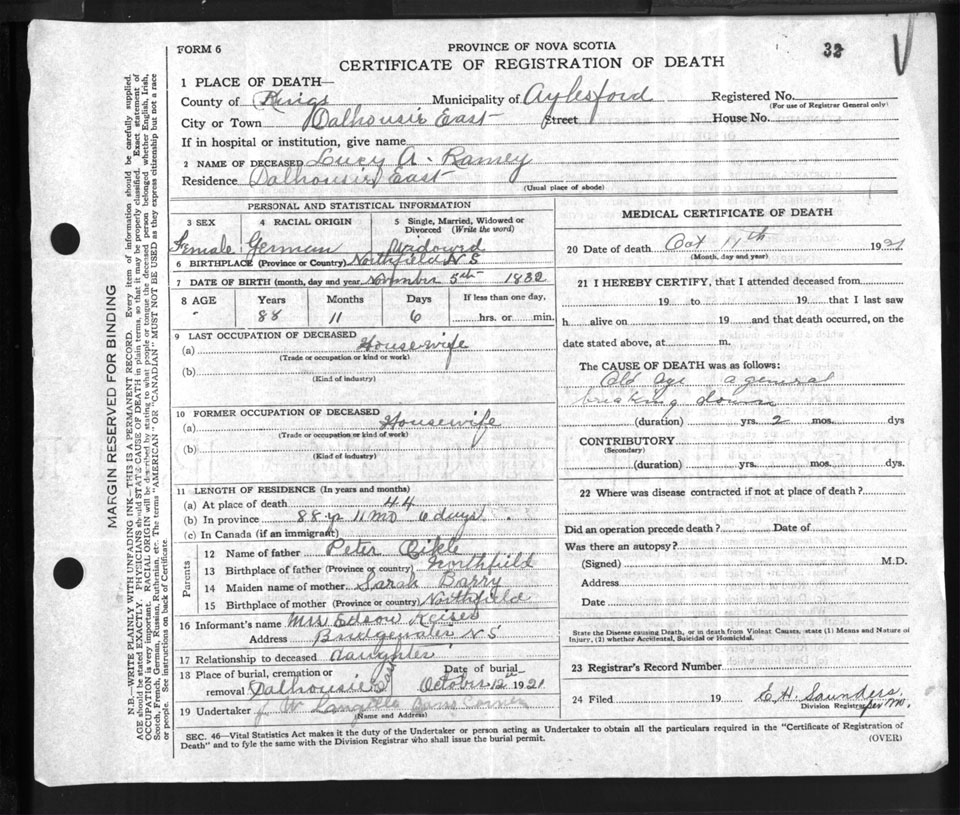 FORM 6
PROVINCE OF NOVA SCOTIA
32
CERTIFICATE OF REGISTRATION OF DEATH
1 PLACE OF DEATH—
County of Kings Municipality of Aylesford Registered No.
(For use of Registrar General only)
City or Town Dalhousie East Street House No.
If in hospital or institution, give name
2 NAME OF DECEASED Lucy A. Ramey
Residence Dalhousie East
(Usual place of abode)
PERSONAL AND STATISTICAL INFORMATION
3 SEX 4 RACIAL ORIGIN 5 Single, Married, Widowed or Divorced (Write the word)
Female German Widowed
6 BIRTHPLACE (Province or Country) Northfield N S
7 DATE OF BIRTH (month, day and year) November 5th 1832
8 AGE Years Months Days If less than one day,
88 11 6 hrs. or min.
9 LAST OCCUPATION OF DECEASED
(a) Housewife
(Trade or occupation or kind of work)
(b)
(Kind of industry)
10 FORMER OCCUPATION OF DECEASED
(a) Housewife
(Trade or occupation or kind of work)
(b)
(Kind of industry)
11 LENGTH OF RESIDENCE (In years and months)
(a) At place of death 44
(b) In province 88 yr 11 mo 6 days.
(c) In Canada (if an immigrant)
Parents
12 Name of father Peter
13 Birthplace of father (Province or country) Northfield
14 Maiden name of mother Sarah Barry
15 Birthplace of mother (Province or country) Northfield
16 Informant's name Mrs Edson
Address Bridgewater N S
17 Relationship to deceased daughter
18 Place of burial, cremation or removal Dalhousie East Date of burial October 12th 1921
19 Undertaker J. W.
(Name and Address)
MEDICAL CERTIFICATE OF DEATH
20 Date of death Oct 11th 1921
(Month, day and year)
21 I HEREBY CERTIFY, that I attended deceased from
19 to 19 that I last saw
h alive on 19 and that death occurred, on the
date stated above, at m.
The CAUSE OF DEATH was as follows:
Old age a general
breaking down
(duration) yrs. 2 mos. dys
CONTRIBUTORY
(Secondary)
(duration) yrs. mos. dys.
22 Where was disease contracted if not at place of death?
Did an operation precede death? Date of
Was there an autopsy?
(Signed) M.D.
Address
Date
State the Disease causing Death, or in death from Violent Causes, state (1) Means and Nature of
Injury, (2) whether Accidental, Suicidal or Homicidal.
23 Registrar's Record Number
24 Filed 19 E. H. Saunders
Division Registrar per M.
SEC. 46—Vital Statistics Act makes it the duty of the Undertaker or person acting as Undertaker to obtain all the particulars required in the "Certificate of Registration of
Death" and to fyle the same with the Division Registrar who shall issue the burial permit.
(OVER)
MARGIN RESERVED FOR BINDING
N.B.—WRITE PLAINLY WITH UNFADING INK—THIS IS A PERMANENT RECORD. Every item of information should be carefully supplied.
AGE should be stated EXACTLY. PHYSICIANS should STATE CAUSE OF DEATH in plain terms, so that it may be properly classified. Exact statement of
OCCUPATION is very important. RACIAL ORIGIN will be described by stating to what people or tongue the deceased person belonged whether English, Irish,
Scotch, French, German, Russian, Ruthenian, etc. The terms "AMERICAN" OR "CANADIAN" MUST NOT BE USED as they express citizenship but not a race
or people. See instructions on back of Certificate